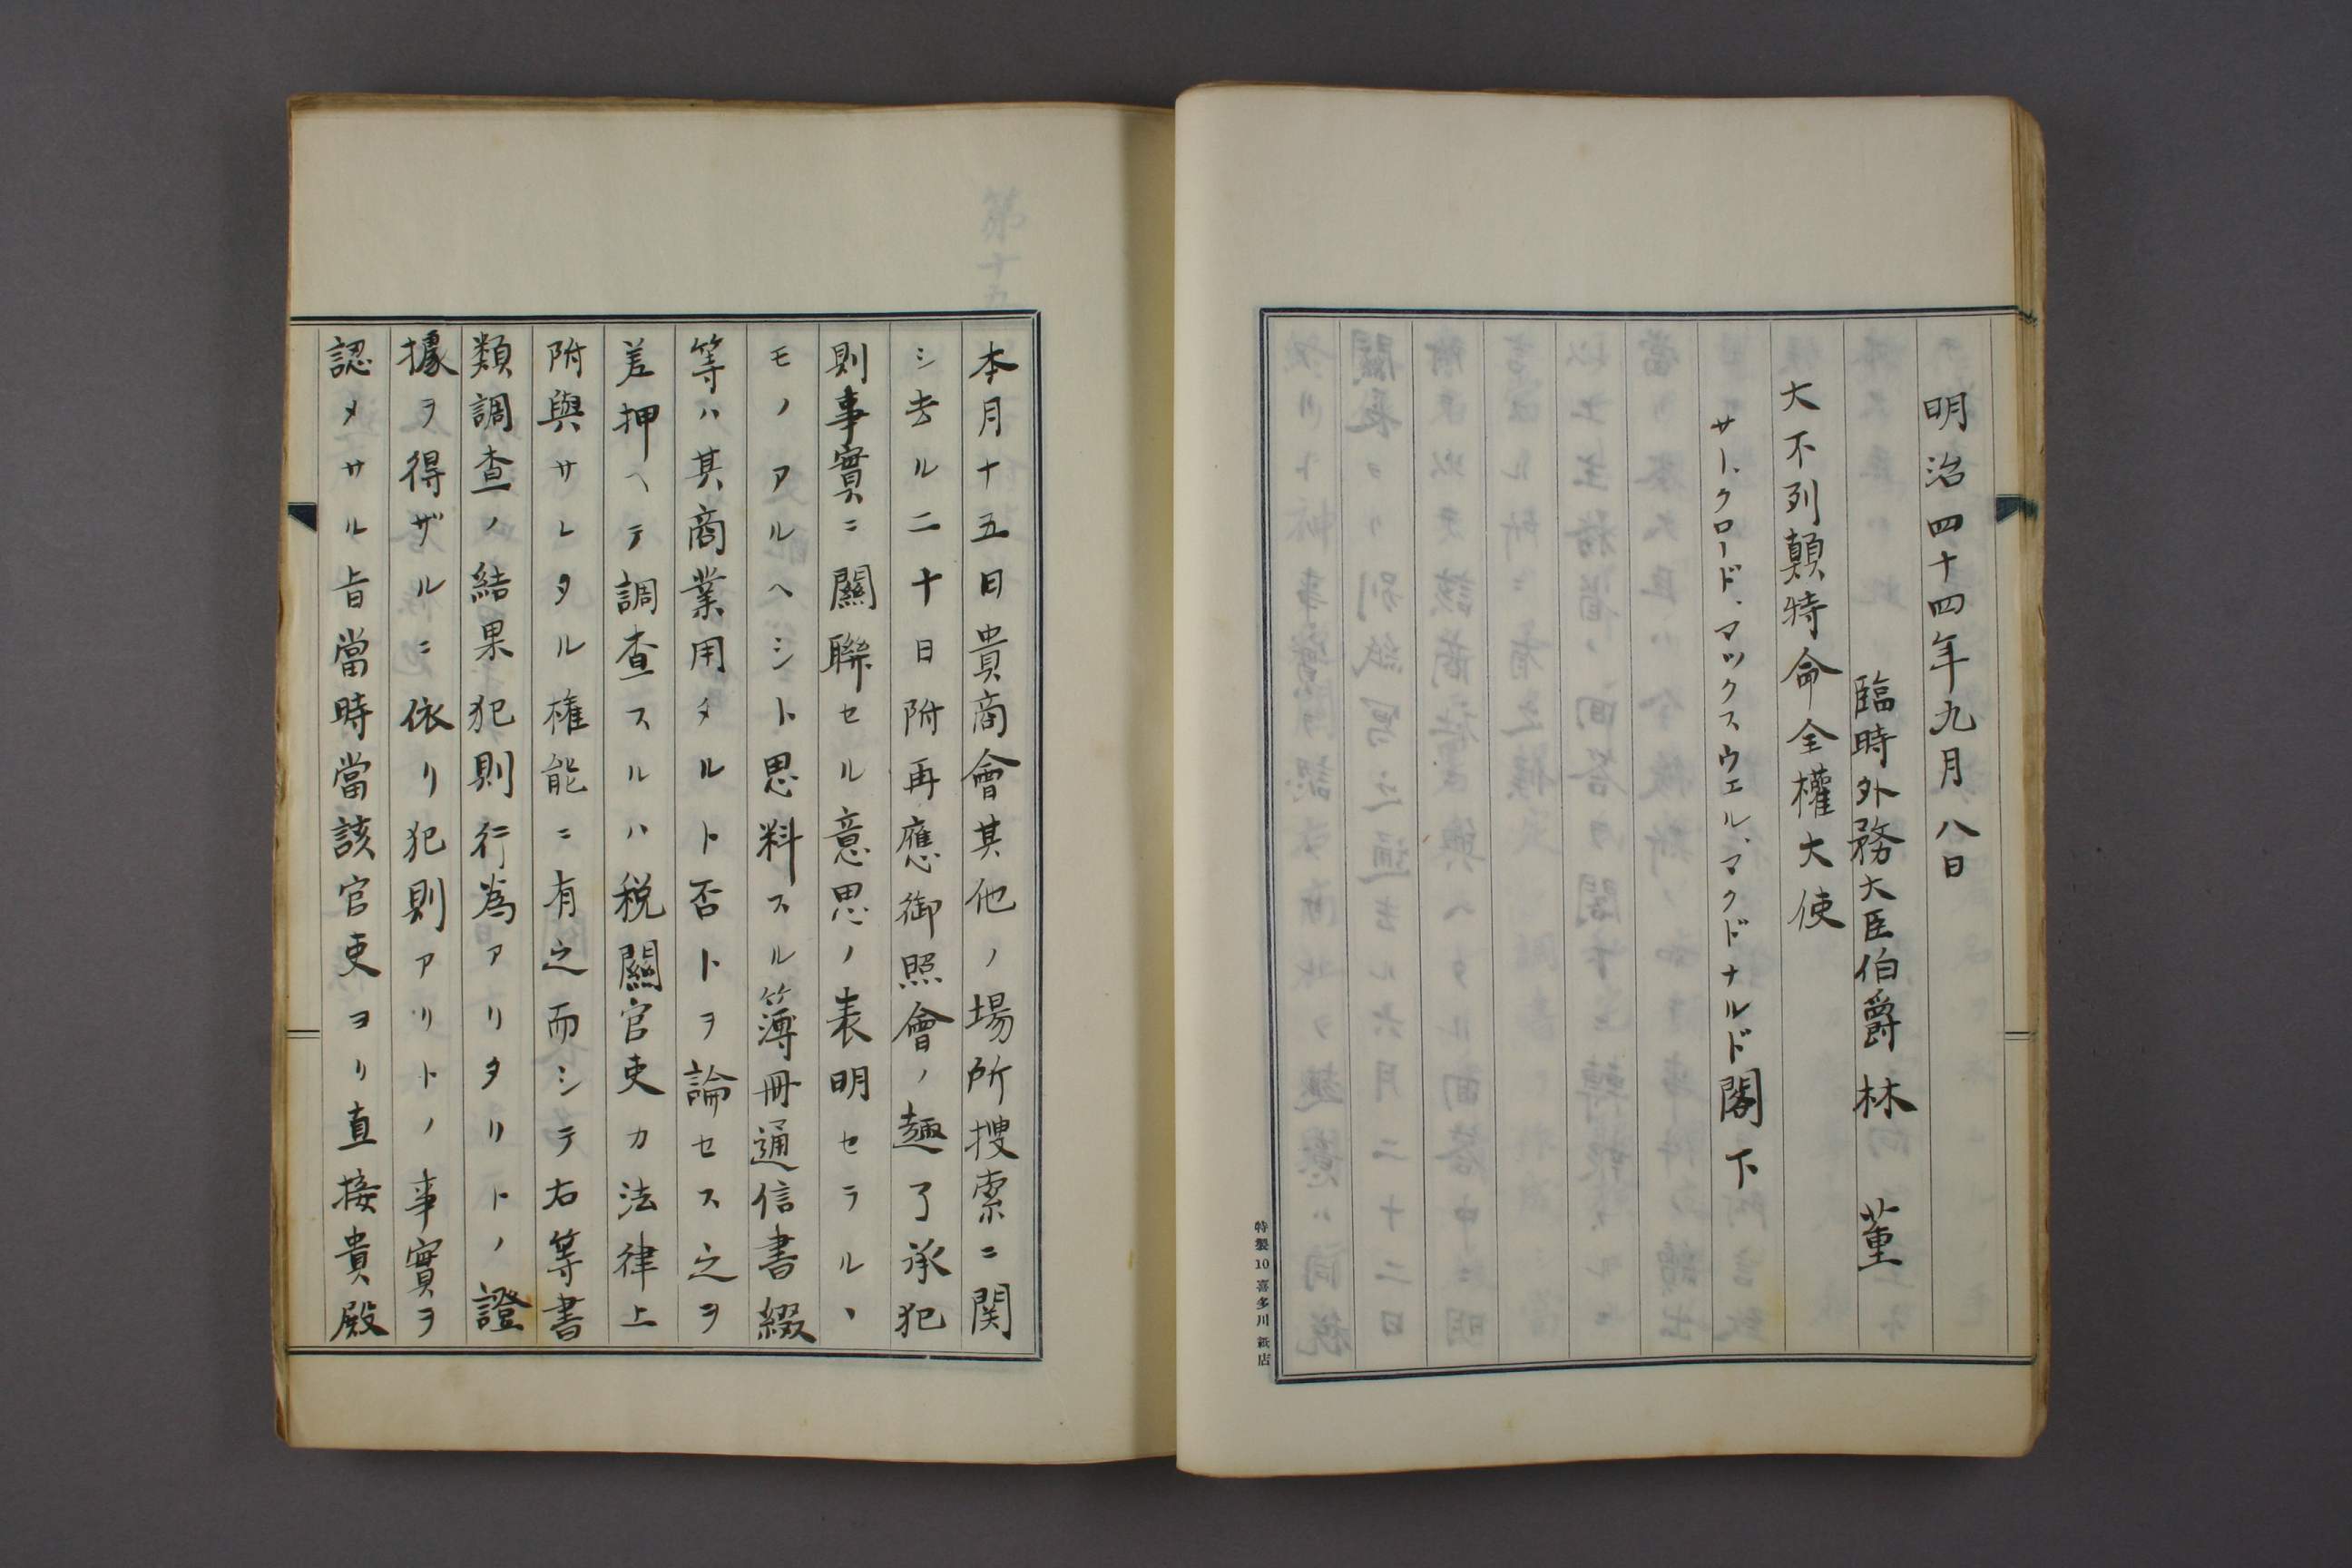 明治四十四年九月八日
臨時外務大臣伯爵 林 董
大不列顛特命全權大使
サー、クロード、マックスウエル、マクドナルド閣下
特製10 喜多川紙店
本月十五日貴商會其他ノ場所搜索ニ関
シ去ル二十日附再應御照會ノ趣了承犯
則事實ニ關聯セル意思ノ表明セラル丶
モノアルヘシト思料スル簿冊通信書綴
等ハ其商業用タルト否トヲ論セス之ヲ
差押ヘテ調査スルハ税關官吏カ法律上
附與サレタル権能ニ有之而シテ右等書
類調査ノ結果犯則行為アリタリトノ證
據ヲ得ザルニ依リ犯則アリトノ事實ヲ
認メサル旨當時當該官吏ヨリ直接貴殿